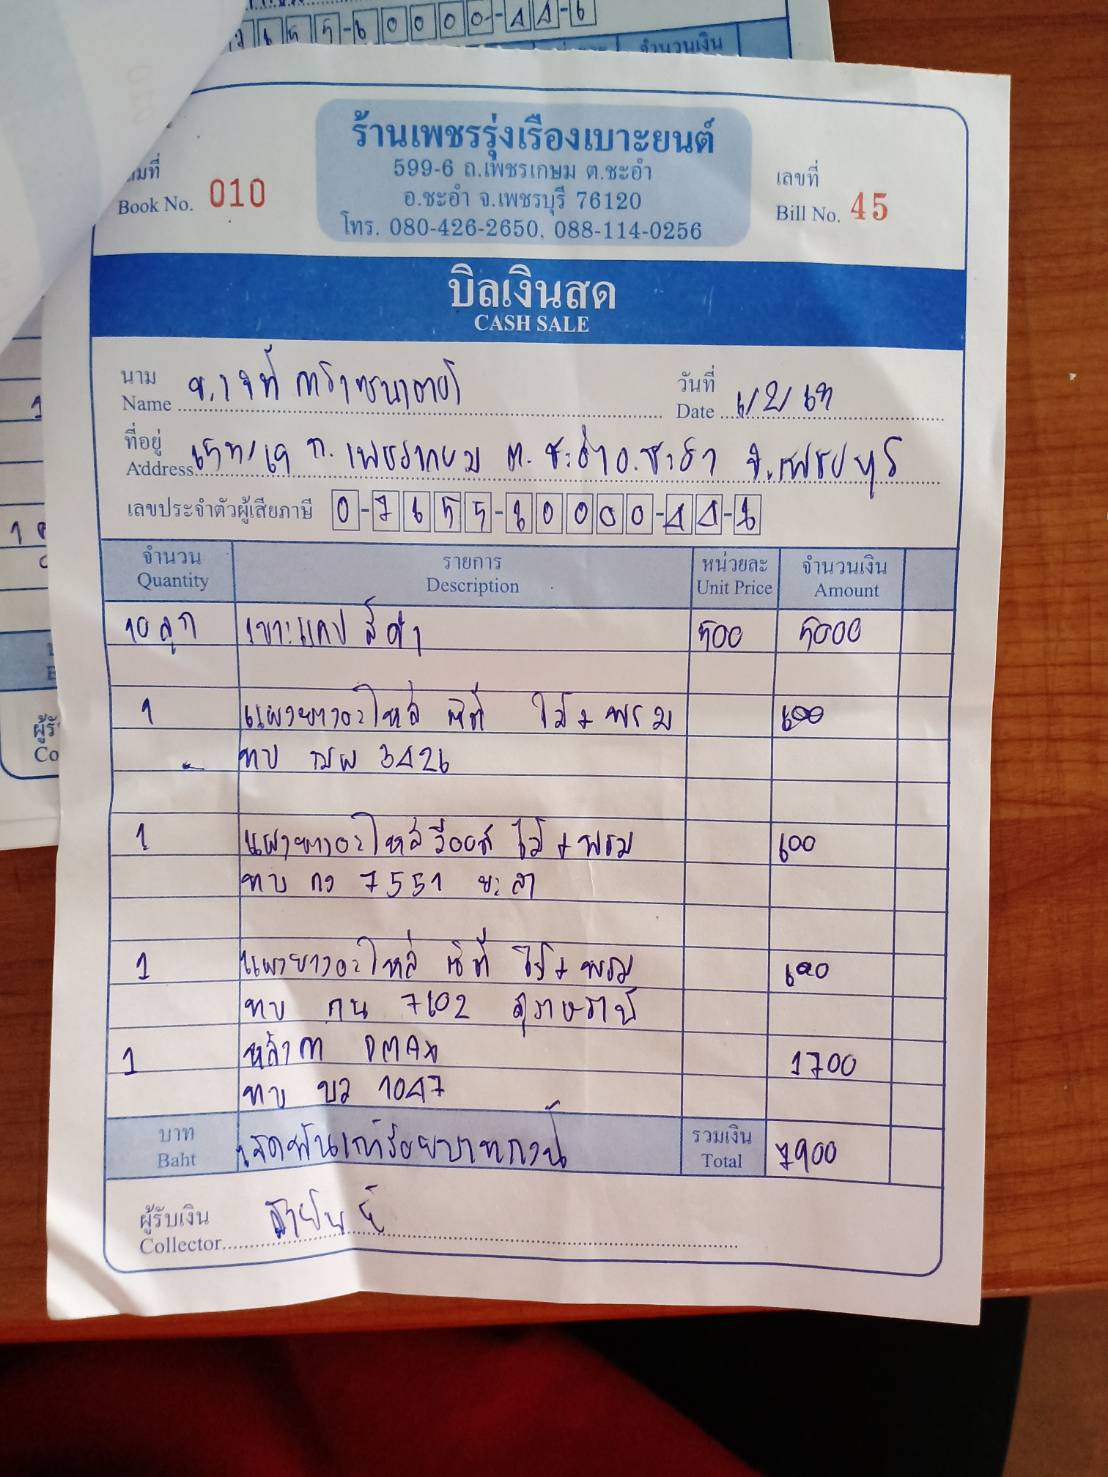 จำนวนเงิน
ร้านเพชรรุ่งเรืองเบาะยนต์
599-6 ถ.เพชรเกษม ต.ชะอำ
อ.ชะอำ จ.เพชรบุรี 76120
โทร. 080-426-2650, 088-114-0256
Book No. 010
เลขที่
Bill No. 45
บิลเงินสด
CASH SALE
นาม
Name
วันที่
Date 6/2/67
ที่อยู่
Address ถ. เพชรเกษม ต. ชะอำ อ. ชะอำ จ. เพชรบุรี
เลขประจำตัวผู้เสียภาษี 0-7655-60000-44-6
จำนวน รายการ หน่วยละ จำนวนเงิน
Quantity Description Unit Price Amount
10 ลูก เบาะแคป สีดำ 500 5000
1 แผงยางอะไหล่ ซิตี้ ไม้ + พรม 600
ทบ 3426
1 แผงยางอะไหล่ วีออส ไม้ + พรม 600
ทบ กง 7551 ยะลา
1 แผงยางอะไหล่ ซิตี้ ไม้ + พรม
ทบ กน 7102 สุราษธานี
1 DMAX 1700
ทบ บว 1047
บาท
Baht เจ็ดพันเก้าร้อยบาทถ้วน
รวมเงิน
Total 7900
ผู้รับเงิน
Collector